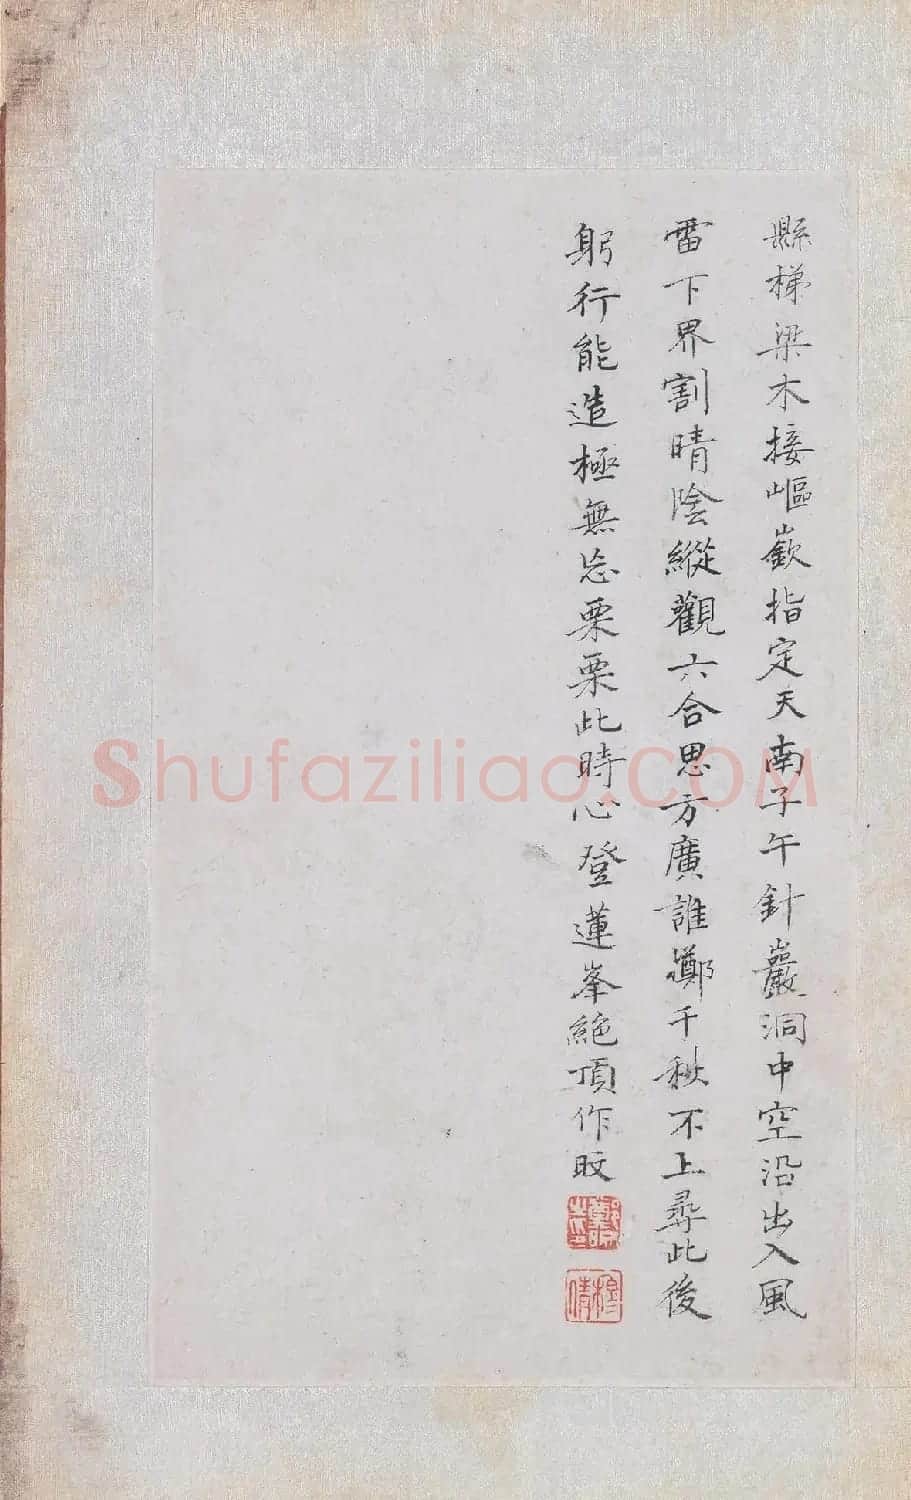 縣梯梁木接嶇嶔指定天南子午針巖洞中空沿出入風
雷下界割晴陰縱觀六合思方廣誰鄭千秋不上尋此後
躬行能造極無忘栗栗此時心登蓮峯絕頂作旼
Shufaziliao.COM